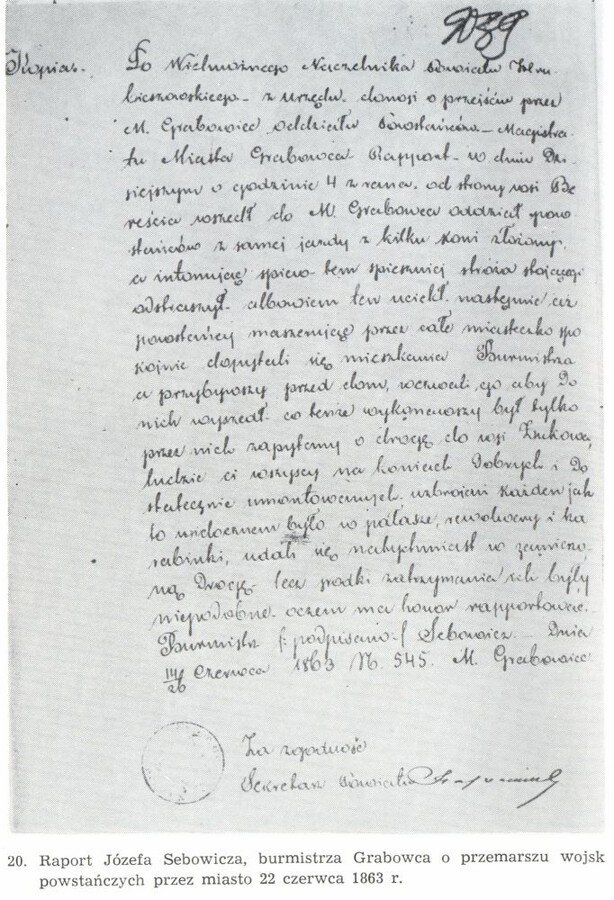 Kopia.
Do Wielmożnego Naczelnika Powiatu Hru-
bieszowskiego - z urzędu donosi o przejściu przez
M. Grabowiec oddziału Powstańców - Magistra-
tu Miasta Grabowca Rapport - w dniu Dzi-
siejszym o godzinie 4 z rana, od strony wsi Be-
reście wszedł do M. Grabowca oddział pow-
stańców z samej jazdy z kilku koni złożony,
a intonując śpiew tem spieszniej stróża stojącego
odstraszył albowiem ten uciekł następnie ciż
powstańcy maszerując przez całe miasteczko spo
kojnie dopytali się mieszkania Burmistrza
a przybywszy przed dom, wezwali go aby Do
nich wyszedł co tenże wykonawszy był tylko
przez nich zapytany o drogę do wsi
ludzie ci wszyscy na koniach Dobrych i Do
statecznie umontowanych uzbrojeni każden jak
to widocznem było w pałasze, rewolwery i ka
rabinki, udali się natychmiast w
ną Drogę - lecz środki zatrzymania ich były
niepodobne oczem ma honor rapportować.
Burmistrz /: podpisano :/ Sebowicz - Dnia
14/26 Czerwca 1863 N. 545. M. Grabowiec
Za zgodność
Sekretarz Powiatu
20. Raport Józefa Sebowicza, burmistrza Grabowca o przemarszu wojsk
powstańczych przez miasto 22 czerwca 1863 r.